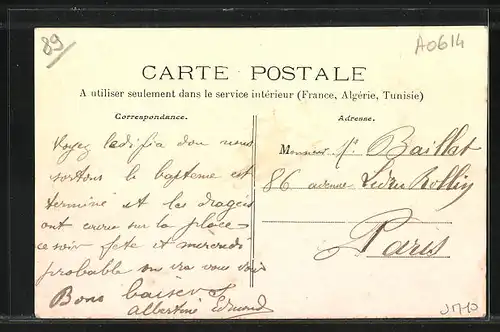 89
A0614
CARTE POSTALE
A utiliser seulement dans le service intérieur (France, Algérie, Tunisie)
Correspondance.
Adresse.
Voyez l'édifia don nous
sortons le baptême est
terminé et les dragées
ont couru sur la place
ce soir fête et mercredi
probable on ira vous voir
Bons baisers
Albertine Edmond
Monsieur Baillat
86 avenue Ledru Rollin
Paris